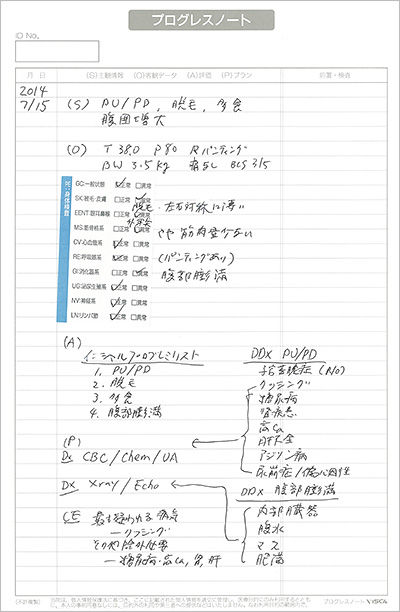 プログレスノート
ID No.
月 日 (S)主観情報 (O)客観データ (A)評価 (P)プラン 処置・検査
2014
7/15 (S) PU/PD, 脱毛, 多食
腹囲増大
(O) T 38.0 P 80 R パンティング
BW 3.5kg 脱水なし BCS 3/5
GC:一般状態 正常 異常
SK:被毛・皮膚 正常 異常
脱毛 左右対称に薄い
EENT:眼耳鼻喉 正常 異常
MS:筋骨格系 正常 異常 やや筋肉量少ない
CV:心血管系 正常 異常
RE:呼吸器系 正常 異常 (パンティングあり)
GI:消化器系 正常 異常 腹部膨満
UG:泌尿生殖系 正常 異常
NV:神経系 正常 異常
LN:リンパ節 正常 異常
(A)
イニシャルプロブレムリスト
1. PU/PD
2. 脱毛
3. 多食
4. 腹部膨満
DDX PU/PD
子宮蓄膿症 (R/O)
クッシング
糖尿病
腎疾患
高Ca
肝不全
アジソン病
尿崩症/偽心因性
(P)
Dx CBC/Chem/UA
Dx Xray/Echo
CE 最も疑われる病気
—クッシング
その他除外必要
—糖尿病・高Ca, 腎, 肝
DDX 腹部膨満
内部臓器
腹水
マス
肥満
(不許複製)
プログレスノート VISCA